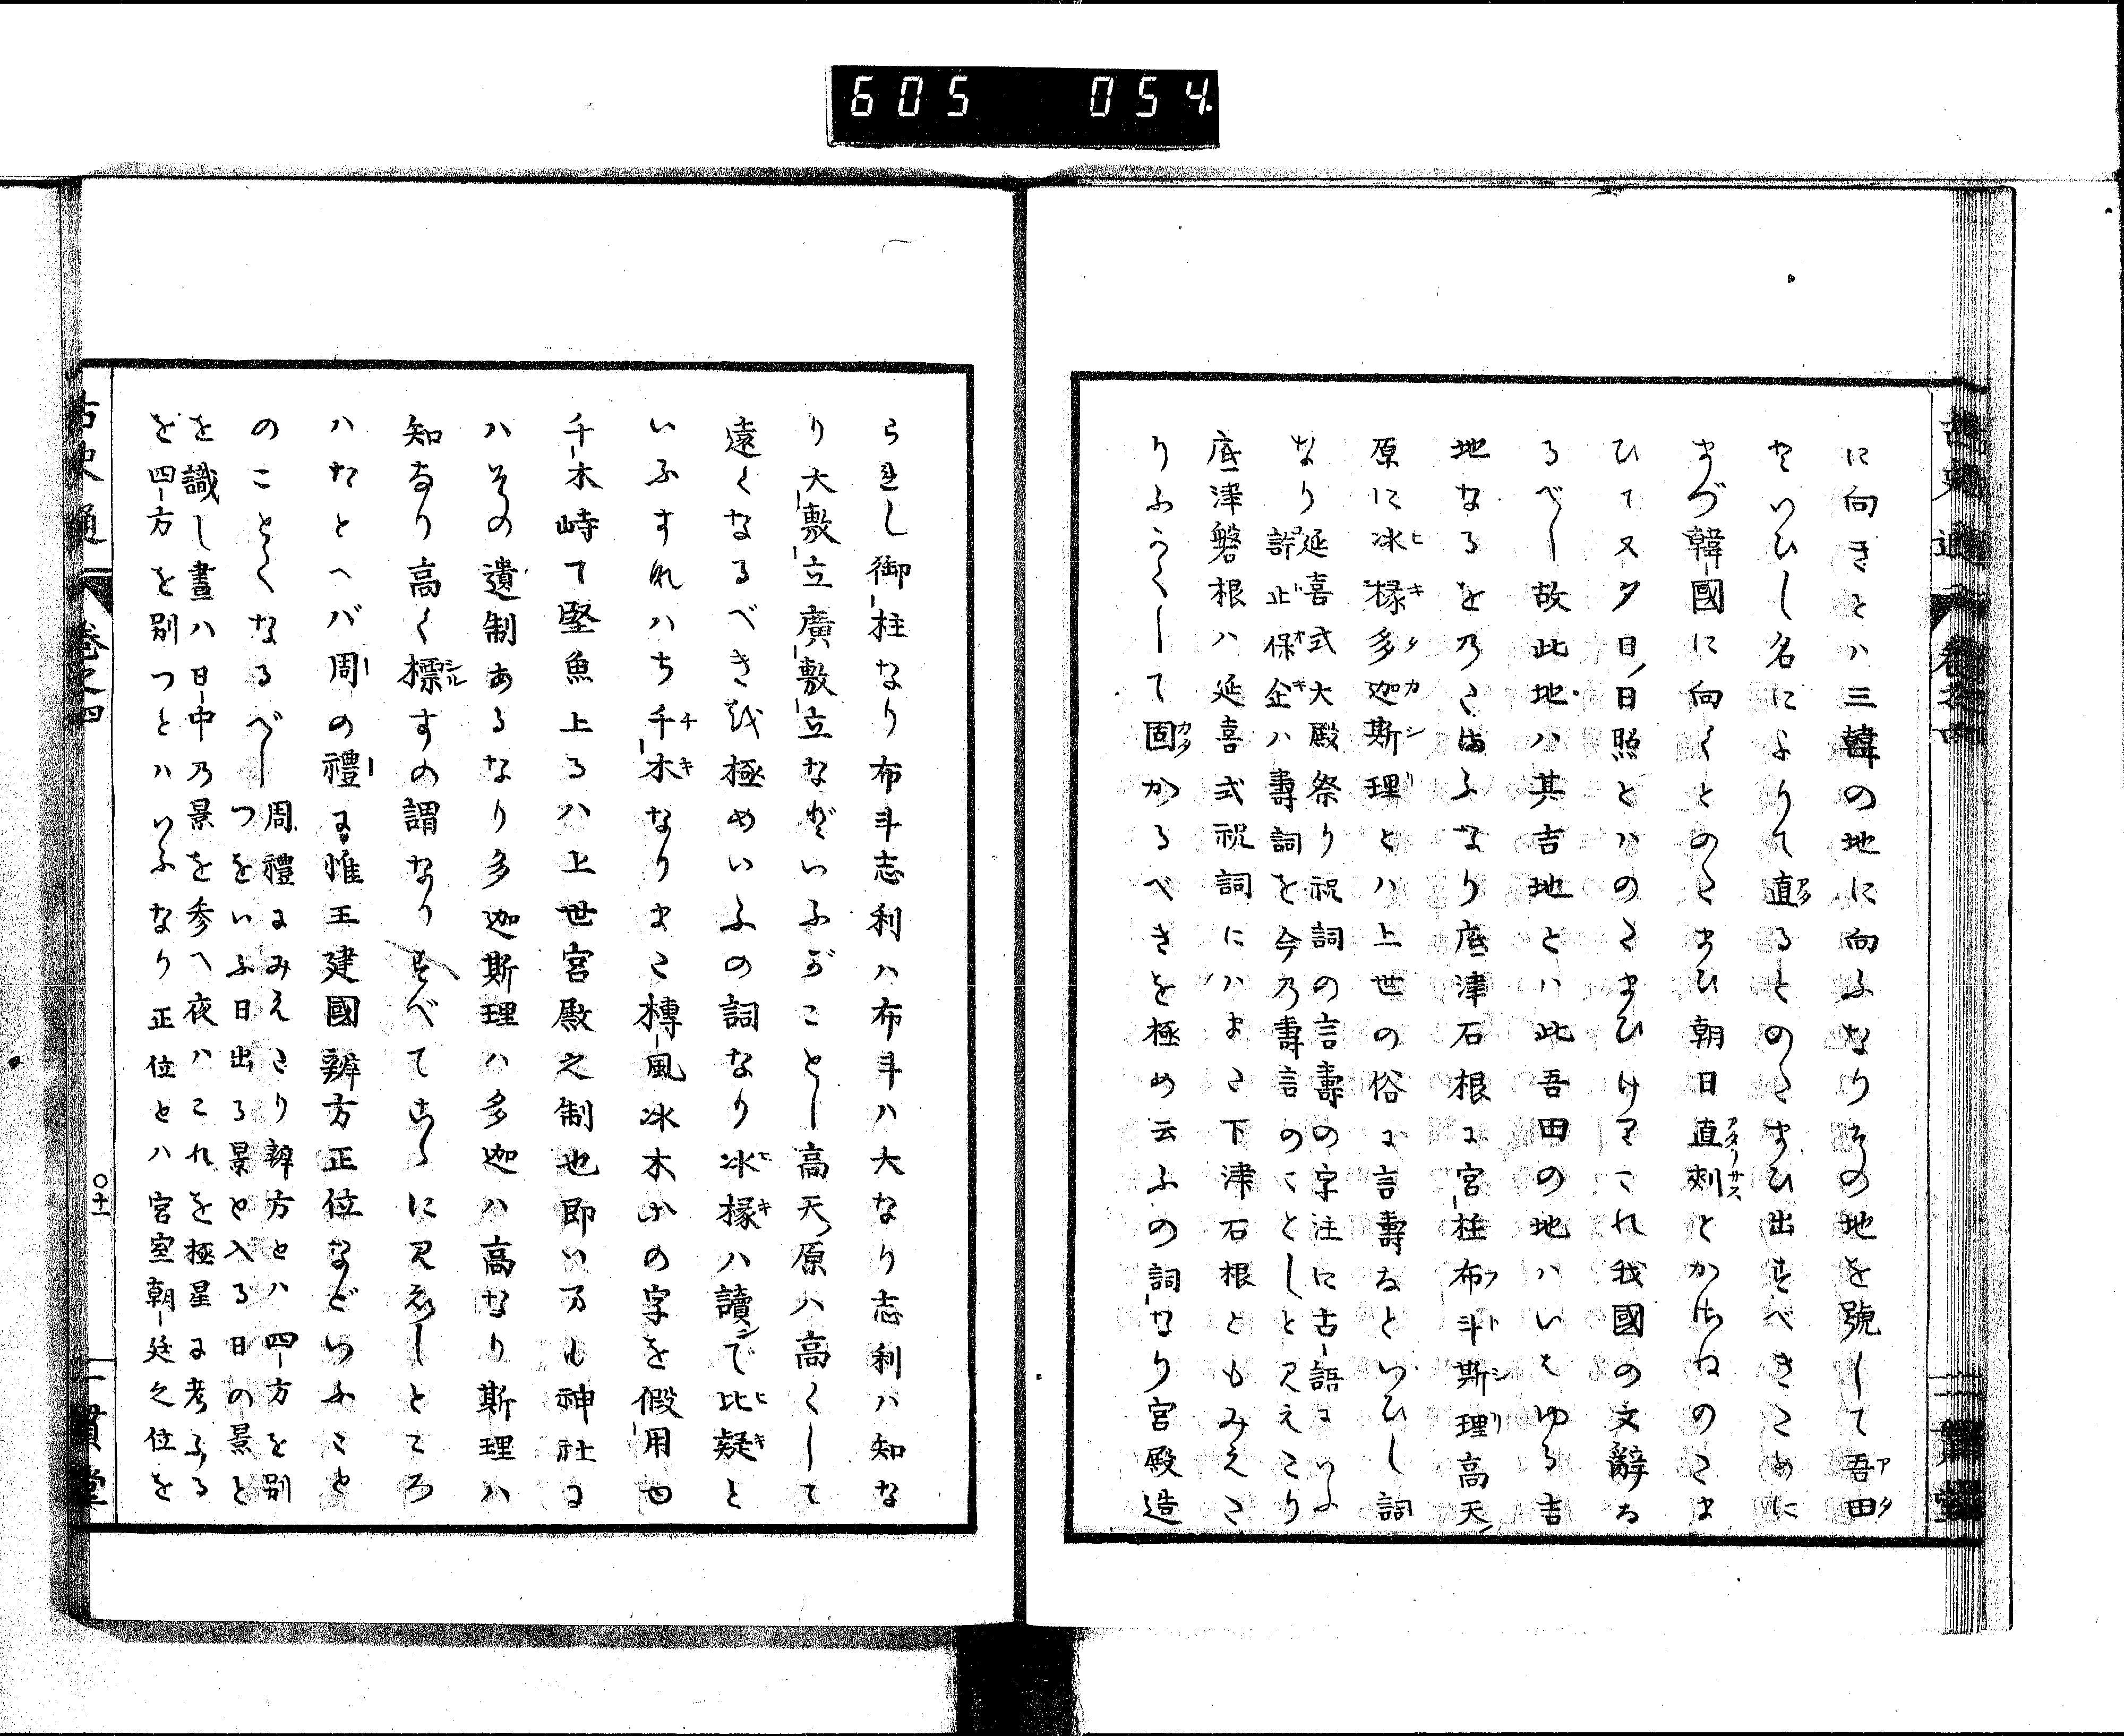 605 054
に向きとハ三韓の地に向ふなりその地を號して吾田
といひし名によりて直るとのたまひ出すべきために
まづ韓國に向くとのたまひ朝日直刺とかさねのたま
ひて又夕日ノ日照とハのたまひけりこれ我國の文辭な
るべし故此地ハ其吉地とハ此吾田の地ハいはゆる吉
地なるをのたまふなり底津石根に宮柱布斗斯理高天ノ
原に冰椽多迦斯理とハ上世の俗に言壽などいひし詞
なり
延喜式大殿祭り祝詞の言壽の字注に古語にいふ
許止保企ハ壽詞を今乃壽言のことしと見えたり
底津磐根ハ延喜式祝詞にハまた下津石根ともみえた
りふかくして固かるべきを極め云ふの詞なり宮殿造
古史通 卷之四
らまし御柱なり布斗志利ハ布斗ハ大なり志利ハ知な
り大敷立廣敷立なぞいふがことし高天原ハ高くして
遠くなるべきを極めいふの詞なり冰椽ハ讀で比疑と
いふすれハち千木なりまた槫風冰木等の字を假用ゆ
千木峙て堅魚上るハ上世宮殿之制也即いまも神社に
ハその遺制あるなり多迦斯理ハ多迦ハ高なり斯理ハ
知なり高く標すの謂なりすべてこゝに見えしところ
ハたとへバ周の禮に惟王建國辨方正位なといふこと
のことくなるべし
周禮にみえたり辨方とハ四方を別
つをいふ日出る景と入る日の景と
を識し晝ハ日中乃景を参へ夜ハこれを極星に考ふる
を四方を別つとハいふなり正位とハ宮室朝廷之位を
古史通 卷之四 〇十一 一貫堂